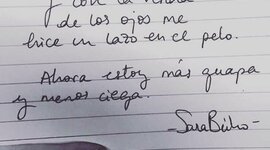 y con la venda
de los ojos me
hice un lazo en el pelo.
Ahora estoy más guapa
y menos ciega.
-Sara Búho-